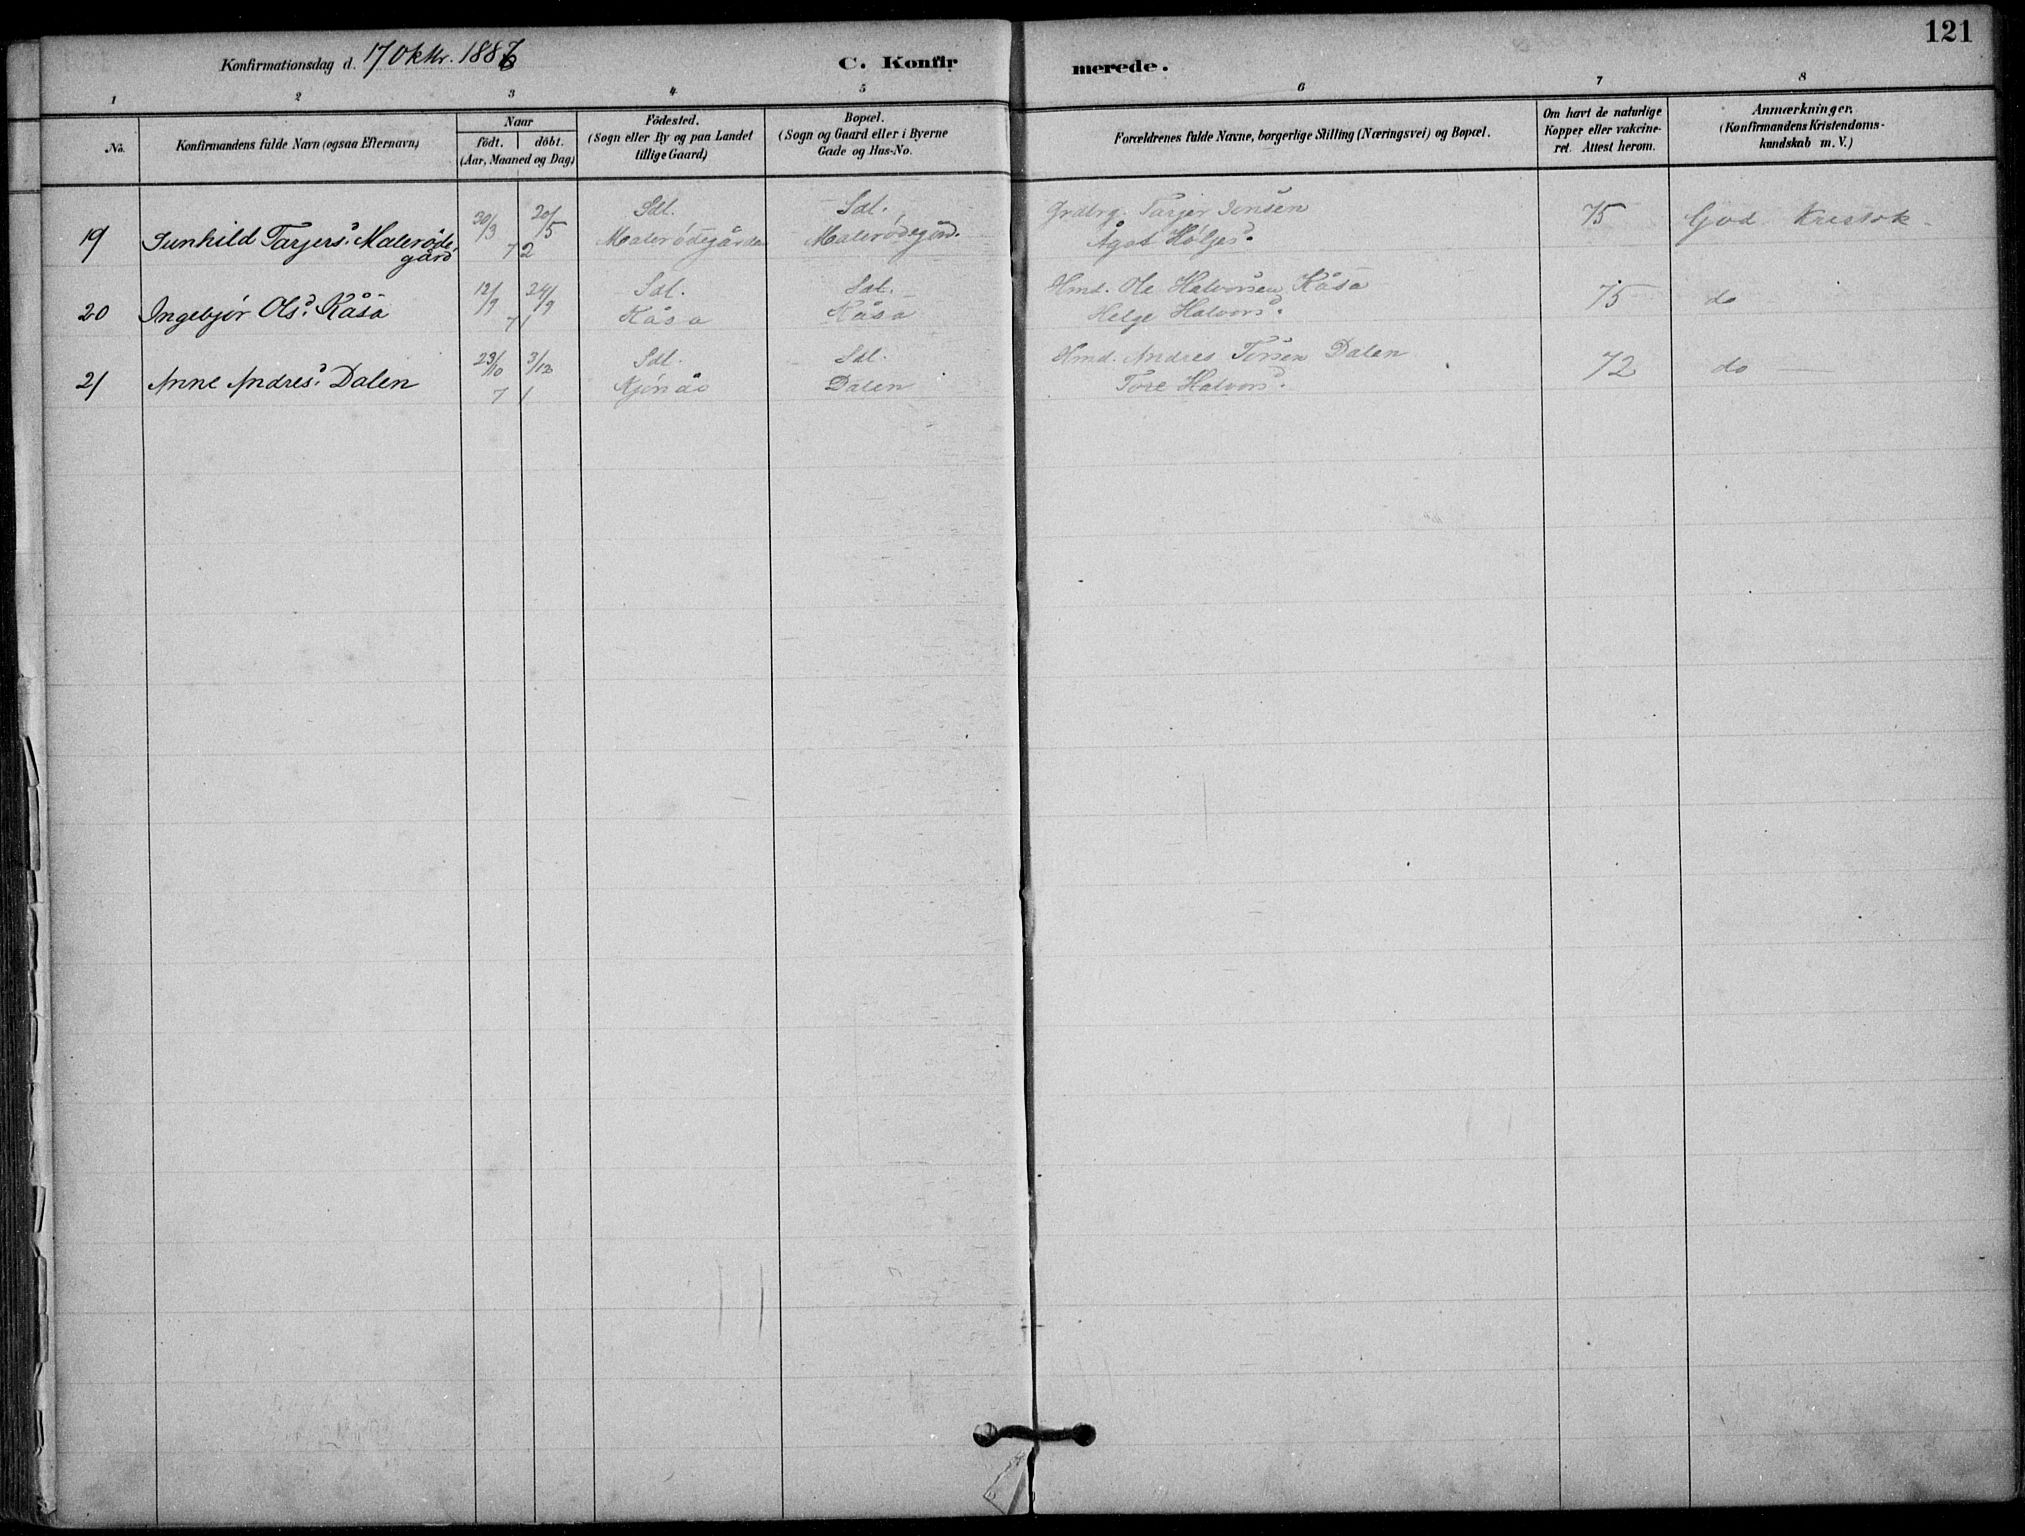 121
Konfirmationsdag d. 17 Oktbr. 1886
C. Konfirmerede.
1 2 3 4 5 6 7 8
No.
Konfirmandens fulde Navn (ogsaa Efternavn)
Naar
födt. döbt.
(Aar, Maaned og Dag)
Födested.
(Sogn eller By og paa Landet
tillige Gaard)
Bopæl.
(Sogn og Gaard eller i Byerne
Gade og Hus-No.
Forældrenes fulde Navne, borgerlige Stilling (Næringsvei) og Bopæl.
Om havt de naturlige
Kopper eller vakcine-
ret. Attest herom.
Anmærkninger.
(Konfirmandens Kristendoms-
kundskab m. V.)
30/3 20/5 Sdl. Sdl. Grdbrg. Tarjer Jonsen 75 God Kristdk.
19 Gunhild Tarjersd. Malerøde- 72 Malerødegården Malerødegård. Ågot Høljesd.
gård
12/9 24/9 Sdl. Sdl. Hmd. Ole Halvorsen Kåsa 75 do
20 Ingebjør Olsd. Kåsa 71 Kåsa Kåsa Helge Halvorsd.
23/10 3/12 Sdl. Sdl. Hmd. Andres Torsen Dalen 72 do —
21 Anne Andresd. Dalen 71 Kjønås Dalen Tore Halvorsd.